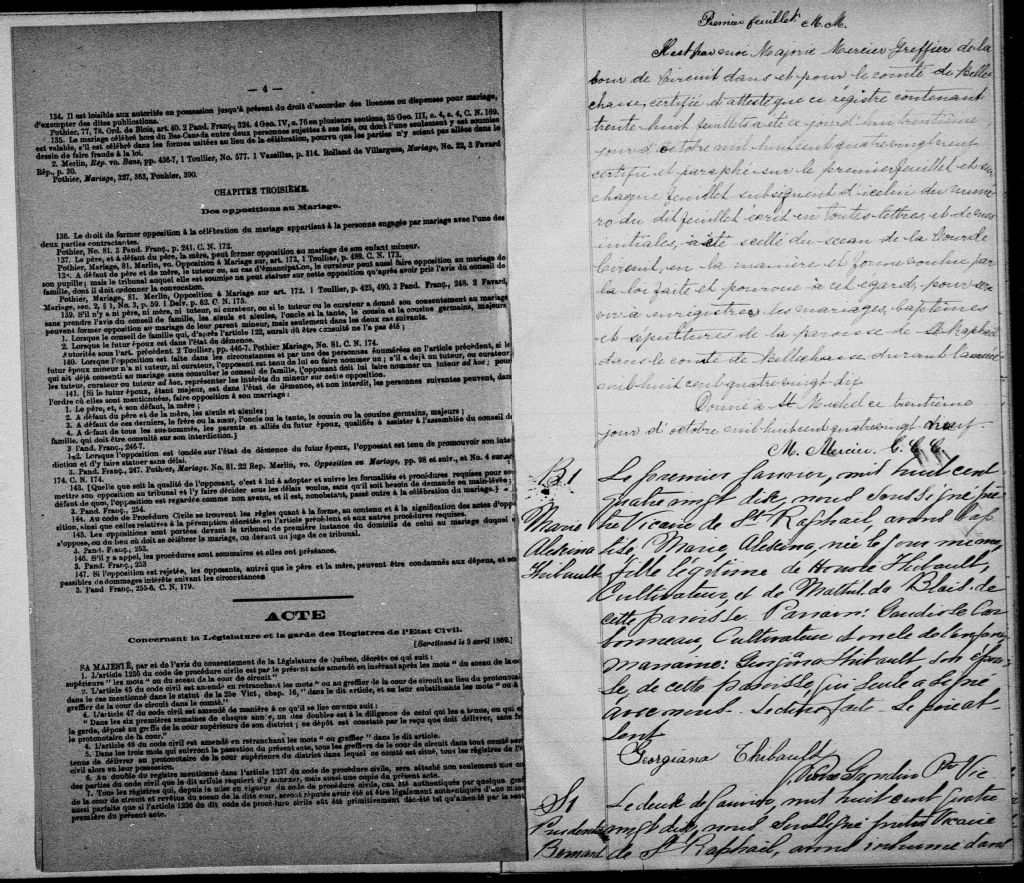 — 4 —
134. Il est loisible aux autorités en possession jusqu'à présent du droit d'accorder des licences ou dispenses pour mariage,
d'exempter des dites publications.
Pothier, 77, 78. Ord. de Blois, art. 40. 2 Pand. Franç., 324. 4 Geo. IV, c. 76 en plusieurs sections, 35 Geo. III, c. 4, s. 4, C. N. 169.
135. Le mariage célébré hors du Bas-Canada entre deux personnes sujettes à ses lois, ou dont l'une seulement y est soumise
est valable, s'il est célébré dans les formes usitées au lieu de la célébration, pourvu que les parties n'y soient pas allées dans le
dessin de faire fraude à la loi.
2. Merlin, Rép. vo. Bans, pp. 436-7, 1 Toullier, No. 577. 1 Vazeilles, p. 314. Rolland de Villargues, Mariage, No. 22, 3 Favard
Rép., p. 30.
Pothier, Mariage, 327, 363, Pouhier, 390.
CHAPITRE TROISIÈME.
Des oppositions au Mariage.
136. Le droit de former opposition à la célébration du mariage appartient à la personne engagée par mariage avec l'une des
deux parties contractantes.
Pothier, No. 81. 3 Pand. Franç., p. 241. C. N. 172.
137. Le père, et à défaut du père, la mère, peut former opposition au mariage de son enfant mineur.
Pothier, Mariage, 81. Merlin, vo. Opposition à Mariage sur, art. 173, 1 Toullier, p. 489. C. N. 173.
138. A défaut de père et de mère, le tuteur ou, au cas d'émancipation, le curateur peut aussi faire opposition au mariage de
son pupille; mais le tribunal auquel elle est soumise ne peut statuer sur cette opposition qu'après avoir pris l'avis du conseil de
famille, dont il doit ordonner la convocation.
Pothier, Mariage, 81. Merlin, Opposition à Mariage sur art. 172. 1 Toullier, p. 425, 490. 3 Pand. Franç., 248. 2 Favard,
Mariage, sec. 2, § 1, No. 3, p. 59. 1 Delv. p. 62. C. N. 175.
139. S'il n'y a ni père, ni mère, ni tuteur, ni curateur, ou si le tuteur ou le curateur a donné son consentement au mariage
sans prendre l'avis du conseil de famille, les aïeuls et aïeules, l'oncle et la tante, le cousin et la cousine germains, majeurs
peuvent former opposition au mariage de leur parent mineur, mais seulement dans les deux cas suivants:
1. Lorsque le conseil de famille qui, d'après l'article 122, aurait dû être consulté ne l'a pas été;
2. Lorsque le futur époux est dans l'état de démence.
Autorités sous l'art. précédent. 2 Toullier, pp. 446-7. Pothier Mariage, No. 81. C. N. 174.
140. Lorsque l'opposition est faite dans les circonstances et par une des personnes énumérées en l'article précédent, si le
futur époux mineur n'a ni tuteur, ni curateur, l'opposant est tenu de lui en faire nommer un; s'il a déjà un tuteur, ou curateur
qui ait déjà consenti au mariage sans consulter le conseil de famille, l'opposant doit lui faire nommer un tuteur ad hoc; pour
les tuteur, curateur ou tuteur ad hoc, représenter les intérêts du mineur sur cette opposition.
141. [Si le futur époux, étant majeur, est dans l'état de démence, et non interdit, les personnes suivantes peuvent, dans
l'ordre où elles sont mentionnées, faire opposition à son mariage:
1. Le père, et, à son défaut, la mère;
2. A défaut du père et de la mère, les aïeuls et aïeules;
3. A défaut de ces derniers, le frère ou la sœur, l'oncle ou la tante, le cousin ou la cousine germains, majeurs;
4. A défaut de tous les sus-nommés, les parents et alliés du futur époux, qualifiés à assister à l'assemblée du conseil de
famille, qui doit être consulté sur son interdiction.]
3 Pand. Franç., 246-7.
142. Lorsque l'opposition est fondée sur l'état de démence du futur époux, l'opposant est tenu de promouvoir son inter
diction et d'y faire statuer sans délai.
3 Pand. Franç., 247. Pothier, Mariage. No. 81. 22 Rep. Merlin, vo. Opposition au Mariage, pp. 98 et suiv., et No. 4 sur art.
174. C. N. 174.
143. [Quelle que soit la qualité de l'opposant, c'est à lui à adopter et suivre les formalités et procédures requises pour sou
mettre son opposition au tribunal et l'y faire décider sous les délais voulus, sans qu'il soit besoin de demande en main-levée;
défaut de quoi, l'opposition est regardée comme non avenu, et il est, nonobstant, passé outre à la célébration du mariage.]
2. Pand. Franç., 254.
144. Au code de Procédure Civile se trouvent les règles quant à la forme, au contenu et à la signification des actes d'oppo
sition, ainsi que celles relatives à la péremption décrétée en l'article précédent et aux autres procédures requises.
145. Les oppositions sont portées devant le tribunal de première instance du domicile de celui au mariage duquel
s'oppose, ou du lieu où doit se célébrer le mariage, ou devant un juge de ce tribunal.
3. Pand. Franç., 253.
146. S'il y a appel, les procédures sont sommaires et elles ont préséance.
3. Pand. Franç., 253
147. Si l'opposition est rejetée, les opposants, autres que le père et la mère, peuvent être condamnés aux dépens, et sont
passibles de dommages intérêts suivant les circonstances.
3. Pand Franç., 255-6. C. N. 179.
ACTE
Concernant la Législature et la garde des Registres de l'Etat Civil.
[Sanctionné le 5 avril 1869.]
SA MAJESTÉ, par et de l'avis du consentement de la Législature de Québec, décrète ce qui suit:
1. L'article 1236 du code de procédure civile est par le présent acte amendé en insérant après les mots " du sceau de la cour
supérieure " les mots " ou du sceau de la cour de circuit "
2. L'article 45 du code civil est amendé en retranchant les mots " ou au greffier de la cour de circuit au lieu du protonotaire
dans le cas mentionné dans le statut de la 25e Vict, chap. 16," dans le dit article, et en leur substituant les mots " ou à
greffier de la cour de circuit dans le comté."
4. L'article 47 du code civil est amendé de manière à ce qu'il se lise comme suit:
" Dans les six premières semaines de chaque année, un des doubles est à la diligence de celui qui les a tenus, ou qui en
la garde, déposé au greffe de la cour supérieure de son district; ce dépôt est constaté par le reçu que doit délivrer, sans frais
le protonotaire de la cour."
4. L'article 48 du code civil est amendé en retranchant les mots " ou greffier " dans le dit article.
5. Dans les trois mois qui suivront la passation du présent acte, tous les greffiers de la cour de circuit dans tout comté seront
tenus de délivrer au protonotaire de la cour supérieure du district dans lequel ce comté est situé, tous les registres de l'état
civil alors en leur possession.
6. Au double du registre mentionné dans l'article 1237 du code de procédure civile, sera attaché non seulement une copie
des parties du code civil que le dit article requiert d'y annexer, mais aussi une copie du présent acte.
7. Tous les registres qui, depuis la mise en vigueur du code de procédure civile, ont été authentiqués par quelque greffier
de la cour de circuit et revêtus du sceau de la dite cour, seront réputés avoir été et être légalement authentiqués d'une manière
aussi parfaite que si l'article 1236 du dit code de procédure civile eût été primitivement décrété tel qu'amendé par la section
première du présent acte.
Premier feuillet M. M.
Il est par moi Majorie Mercier Greffier de la
Cour de Circuit dans et pour le comté de Belle
chasse, certifié et attesté que ce régistre contenant
trente huit feuillets a été ce jourd'hui trentième
jour d'octobre mil huit cent quatre vingt neuf
certifié et paraphé sur le premier feuillet et sur
chaque feuillet subséquent d'icelui du numé
ro du dit feuillet écrit en toutes lettres, et de mes
initiales, a été scellé du sceau de la Cour de
Circuit, en la manière et forme voulue par
la loi faite et pourvue à cet égard, pour ser
vir à enregistrer les mariages, baptêmes
et sépultures de la paroisse de St Raphaël
dans le comté de Bellechasse, durant l'année
mil huit cent quatre vingt dix
Donné à St Michel ce trentième
jour d'octobre mil huit cent quatre vingt neuf.
M. Mercier. C. C. C.
B1
Marie
Alexina
Thibault
Le premier Janvier, mil huit cent
quatre vingt dix, nous soussigné prê
tre Vicaire de St Raphaël, avons bap
tisé, Marie, Alexina, née le jour même,
fille légitime de Honoré Thibault,
Cultivateur, et de Mathilde Blais de
cette paroisse. Parrain: Gaudiose Car
bonneau, Cultivateur, oncle de l'enfant
Marraine: Georgiana Thibault, son épou
se, de cette paroisse, qui seule a signé
avec nous. Lecture faite. Le père ab-
sent
Georgiana Thibault
Ptre Vic
S1
Prudent
Le deux de Janvier, mil huit cent quatre
vingt dix, nous soussigné prêtre Vicaire
de St Raphaël, avons inhumé dans